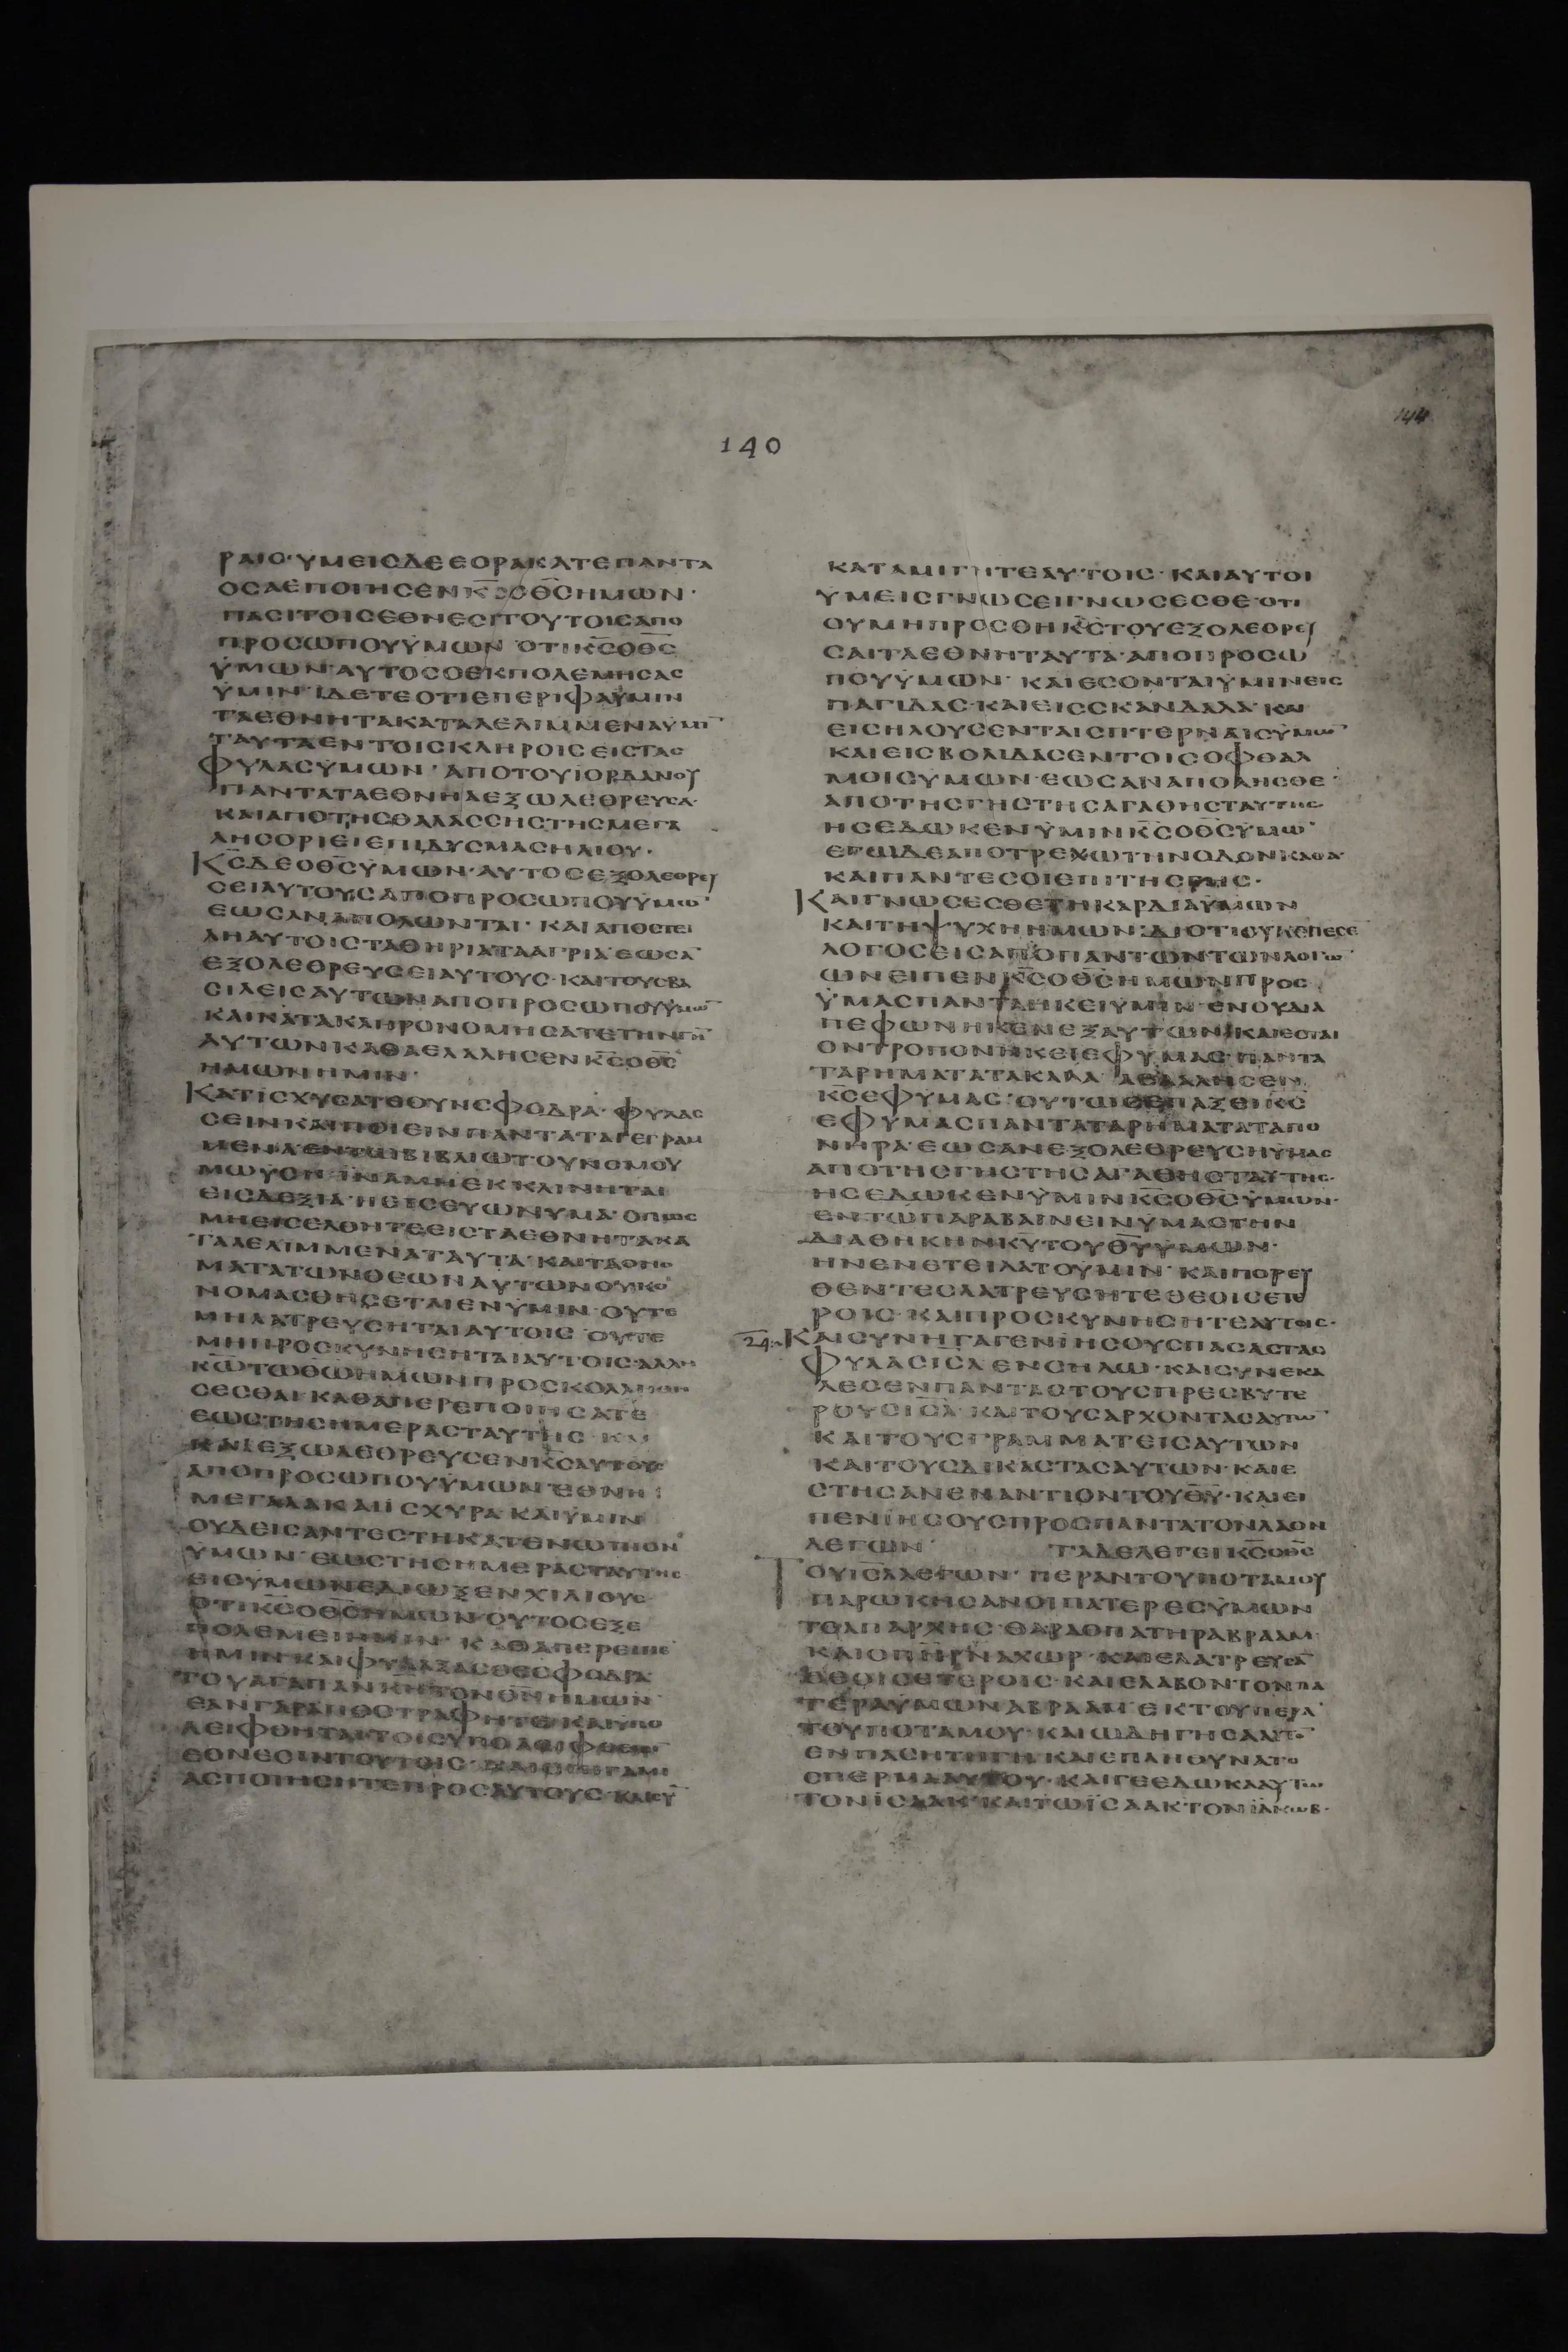 144
140
ΡΑΙΣ·ΥΜΕΙΣΔΕΕΟΡΑΚΑΤΕΠΑΝΤΑ
ΟΣΑΕΠΟΙΗΣΕΝΚ̅Σ̅ΟΘ̅Σ̅ΗΜΩΝ·
ΠΑΣΙΤΟΙΣΕΘΝΕΣΙΤΟΥΤΟΙΣΑΠΟ
ΠΡΟΣΩΠΟΥΫΜΩΝ ΟΤΙΚ̅Σ̅ΟΘ̅Σ̅
ΫΜΩΝ·ΑΥΤΟΣΟΕΚΠΟΛΕΜΗΣΑΣ
ΫΜΙΝ·ΙΔΕΤΕΟΤΙΕΠΕΡΙΦΑΫΜΙΝ
ΤΑΕΘΝΗΤΑΚΑΤΑΛΕΛΙΜΜΕΝΑΫΜΙ̅
ΤΑΥΤΑΕΝΤΟΙΣΚΛΗΡΟΙΣΕΙΣΤΑΣ
ΦΥΛΑΣΫΜΩΝ·ΑΠΟΤΟΥΙΟΡΔΑΝΟΥ
ΠΑΝΤΑΤΑΕΘΝΗΑΕΞΩΛΕΘΡΕΥΣΑ·
ΚΑΙΑΠΟΤΗΣΘΑΛΑΣΣΗΣΤΗΣΜΕΓΑ
ΛΗΣΟΡΙΕΙΕΠΙΔΥΣΜΑΣΗΛΙΟΥ·
Κ̅Σ̅ΔΕΟΘ̅Σ̅ΫΜΩΝ·ΑΥΤΟΣΕΞΟΛΕΘΡΕΥ
ΣΕΙΑΥΤΟΥΣΑΠΟΠΡΟΣΩΠΟΥΫΜΩ̅
ΕΩΣΑΝΑΠΟΛΩΝΤΑΙ·ΚΑΙΑΠΟΣΤΕΛΕΙ
ΛΗΑΥΤΟΙΣΤΑΘΗΡΙΑΤΑΑΓΡΙΑΕΩΣΑ̅
ΕΞΟΛΕΘΡΕΥΣΕΙΑΥΤΟΥΣ·ΚΑΙΤΟΥΣΒΑ
ΣΙΛΕΙΣΑΥΤΩΝΑΠΟΠΡΟΣΩΠΟΥΫΜΩ̅
ΚΑΙΝΑΤΑΚΛΗΡΟΝΟΜΗΣΑΤΕΤΗΝΓΗ̅
ΑΥΤΩΝΚΑΘΑΕΛΑΛΗΣΕΝΚ̅Σ̅ΟΘ̅Σ̅
ΗΜΩΝΗΜΙΝ·
ΚΑΤΙΣΧΥΣΑΤΕΟΥΝΣΦΟΔΡΑ·ΦΥΛΑΣ
ΣΕΙΝΚΑΙΠΟΙΕΙΝΠΑΝΤΑΤΑΓΕΓΡΑΜ
ΜΕΝΑΕΝΤΩΒΙΒΛΙΩΤΟΥΝΟΜΟΥ
ΜΩΥΣΗ·ΪΝΑΜΗΕΚΚΛΙΝΗΤΑΙ
ΕΙΣΔΕΞΙΑ·ΗΕΙΣΕΥΩΝΥΜΑ·ΟΠΩΣ
ΜΗΕΙΣΕΛΘΗΤΕΕΙΣΤΑΕΘΝΗΤΑΚΑ
ΤΑΛΕΛΙΜΜΕΝΑΤΑΥΤΑ·ΚΑΙΤΑΟΝΟ
ΜΑΤΑΤΩΝΘΕΩΝΑΥΤΩΝΟΥΚΟ
ΝΟΜΑΣΘΗΣΕΤΑΙΕΝΥΜΙΝ·ΟΥΤΕ
ΜΗΛΑΤΡΕΥΣΗΤΑΙΑΥΤΟΙΣ ΟΥΤΕ
ΜΗΠΡΟΣΚΥΝΗΣΗΤΑΙΑΥΤΟΙΣ·ΑΛΛΗ
Κ̅Ω̅ΤΩΘ̅Ω̅ΗΜΩΝΠΡΟΣΚΟΛΛΗΘΗ
ΣΕΣΘΑΙ·ΚΑΘΑΠΕΡΕΠΟΙΗΣΑΤΕ
ΕΩΣΤΗΣΗΜΕΡΑΣΤΑΥΤΗΣ·ΚΑΙ
ΚΑΙΕΞΩΛΕΘΡΕΥΣΕΝΚ̅Σ̅ΑΥΤΟΥΣ
ΑΠΟΠΡΟΣΩΠΟΥΫΜΩΝΕΘΝΗ
ΜΕΓΑΛΑΚΑΙΙΣΧΥΡΑ·ΚΑΙΫΜΙΝ
ΟΥΔΕΙΣΑΝΤΕΣΤΗΚΑΤΕΝΩΠΙΟΝ
ΫΜΩΝ·ΕΩΣΤΗΣΗΜΕΡΑΣΤΑΥΤΗΣ
ΕΙΣΫΜΩΝΕΔΙΩΞΕΝΧΙΛΙΟΥΣ·
ΟΤΙΚ̅Σ̅ΟΘ̅Σ̅ΗΜΩΝΟΥΤΟΣΕΞΕ
ΠΟΛΕΜΕΙΗΜΙΝ·ΚΑΘΑΠΕΡΕΙΠΕ̅
ΗΜΙΝ·ΚΑΙΦΥΛΑΞΑΣΘΕΣΦΟΔΡΑ
ΤΟΥΑΓΑΠΑΝΚ̅Ν̅ΤΟΝΘ̅Ν̅ΗΜΩΝ·
ΕΑΝΓΑΡΑΠΟΣΤΡΑΦΗΤΕ·ΚΑΙΥΠΟ
ΛΕΙΦΘΗΤΑΙΤΟΙΣΥΠΟΛΕΙΦΘΕΙΣΙ̅
ΕΘΝΕΣΙΝΤΟΥΤΟΙΣ·ΚΑΙΕΠΙΓΑΜΙ
ΑΣΠΟΙΗΣΗΤΕΠΡΟΣΑΥΤΟΥΣ·ΚΑΙΣΥ̅
ΚΑΤΑΜΙΓΗΤΕΑΥΤΟΙΣ·ΚΑΙΑΥΤΟΙ
ΥΜΕΙΣΓΝΩΣΕΙΓΝΩΣΕΣΘΕ·ΟΤΙ
ΟΥΜΗΠΡΟΣΘΗΚ̅Σ̅ΤΟΥΕΞΟΛΕΘΡΕΥ
ΣΑΙΤΑΕΘΝΗΤΑΥΤΑ·ΑΠΟΠΡΟΣΩ
ΠΟΥΫΜΩΝ·ΚΑΙΕΣΟΝΤΑΙΫΜΙΝΕΙΣ
ΠΑΓΙΔΑΣ·ΚΑΙΕΙΣΣΚΑΝΔΑΛΑ·ΚΑΙ
ΕΙΣΗΛΟΥΣΕΝΤΑΙΣΠΤΕΡΝΑΙΣΫΜΩ̅
ΚΑΙΕΙΣΒΟΛΙΔΑΣΕΝΤΟΙΣΟΦΘΑΛ
ΜΟΙΣΥΜΩΝ·ΕΩΣΑΝΑΠΟΛΗΣΘΕ·
ΑΠΟΤΗΣΓΗΣΤΗΣΑΓΑΘΗΣΤΑΥΤΗΣ
ΗΣΕΔΩΚΕΝΫΜΙΝΚ̅Σ̅ΟΘ̅Σ̅ΫΜΩ̅
ΕΓΩΔΕΑΠΟΤΡΕΧΩΤΗΝΟΔΟΝΚΑΘΑ
ΚΑΙΠΑΝΤΕΣΟΙΕΠΙΤΗΣΓΗΣ·
ΚΑΙΓΝΩΣΕΣΘΕΤΗΚΑΡΔΙΑΥΜΩΝ
ΚΑΙΤΗΨΥΧΗΗΜΩΝ·ΔΙΟΤΙΟΥΚΕΠΕΣΕ̅
ΛΟΓΟΣΕΙΣΑΠΟΠΑΝΤΩΝΤΩΝΛΟΓΩ̅
ΩΝΕΙΠΕΝΚ̅Σ̅ΟΘ̅Σ̅ΗΜΩΝΠΡΟΣ
ΫΜΑΣΠΑΝΤΑΗΚΕΙΥΜΙΝ·ΕΝΟΥΔΙΑ
ΠΕΦΩΝΗΚΕΝΕΞΑΥΤΩΝ·ΚΑΙΕΣΤΑΙ
ΟΝΤΡΟΠΟΝΗΚΕΙΕΦΥΜΑΣ·ΠΑΝΤΑ
ΤΑΡΗΜΑΤΑΤΑΚΑΛΑ ΑΕΛΑΛΗΣΕΝ
Κ̅Σ̅ΕΦΥΜΑΣ·ΟΥΤΩΣΕΠΑΞΕΙΚ̅Σ̅
ΕΦΥΜΑΣΠΑΝΤΑΤΑΡΗΜΑΤΑΤΑΠΟ
ΝΗΡΑ·ΕΩΣΑΝΕΞΟΛΕΘΡΕΥΣΗΥΜΑΣ
ΑΠΟΤΗΣΓΗΣΤΗΣΑΓΑΘΗΣΤΑΥΤΗΣ·
ΗΣΕΔΩΚΕΝΥΜΙΝΚ̅Σ̅ΟΘ̅Σ̅ΫΜΩΝ·
ΕΝΤΩΠΑΡΑΒΑΙΝΕΙΝΥΜΑΣΤΗΝ
ΔΙΑΘΗΚΗΝΚ̅Υ̅ΤΟΥΘ̅Υ̅ΥΜΩΝ·
ΗΝΕΝΕΤΕΙΛΑΤΟΥΜΙΝ·ΚΑΙΠΟΡΕΥ
ΘΕΝΤΕΣΛΑΤΡΕΥΣΗΤΕΘΕΟΙΣΕΤΕ
ΡΟΙΣ·ΚΑΙΠΡΟΣΚΥΝΗΣΗΤΕΑΥΤΟΙΣ·
24. ΚΑΙΣΥΝΗΓΑΓΕΝΙΗΣΟΥΣΠΑΣΑΣΤΑΣ
ΦΥΛΑΣΙ̅Σ̅Λ̅ΕΝΣΗΛΩ·ΚΑΙΣΥΝΕΚΑ
ΛΕΣΕΝΠΑΝΤΑΣΤΟΥΣΠΡΕΣΒΥΤΕ
ΡΟΥΣΙ̅Σ̅Λ̅·ΚΑΙΤΟΥΣΑΡΧΟΝΤΑΣΑΥΤΩ̅
ΚΑΙΤΟΥΣΓΡΑΜΜΑΤΕΙΣΑΥΤΩΝ
ΚΑΙΤΟΥΣΔΙΚΑΣΤΑΣΑΥΤΩΝ·ΚΑΙΕ
ΣΤΗΣΑΝΕΝΑΝΤΙΟΝΤΟΥΘ̅Υ̅·ΚΑΙΕΙ
ΠΕΝΙΗΣΟΥΣΠΡΟΣΠΑΝΤΑΤΟΝΛΑΟΝ
ΛΕΓΩΝ· ΤΑΔΕΛΕΓΕΙΚ̅Σ̅ΟΘ̅Σ̅
ΤΟΥΙ̅Σ̅Λ̅ΛΕΓΩΝ·ΠΕΡΑΝΤΟΥΠΟΤΑΜΟΥ
ΠΑΡΩΚΗΣΑΝΟΙΠΑΤΕΡΕΣΫΜΩΝ
ΤΟΑΠΑΡΧΗΣ·ΘΑΡΑΟΠΑΤΗΡΑΒΡΑΑΜ·
ΚΑΙΟΠ̅Η̅Ρ̅ΝΑΧΩΡ·ΚΑΙΕΛΑΤΡΕΥΣΑ̅
ΘΕΟΙΣΕΤΕΡΟΙΣ·ΚΑΙΕΛΑΒΟΝΤΟΝΠΑ
ΤΕΡΑΥΜΩΝΑΒΡΑΑΜ·ΕΚΤΟΥΠΕΡΑ̅
ΤΟΥΠΟΤΑΜΟΥ·ΚΑΙΩΔΗΓΗΣΑΑΥΤΟ̅
ΕΝΠΑΣΗΤΗΓΗ·ΚΑΙΕΠΛΗΘΥΝΑΤΟ
ΣΠΕΡΜΑΑΥΤΟΥ·ΚΑΙΓΕΕΔΩΚΑΑΥΤΩ
ΤΟΝΙΣΑΑΚ·ΚΑΙΤΩΪΣΑΑΚΤΟΝΪΑΚΩΒ·